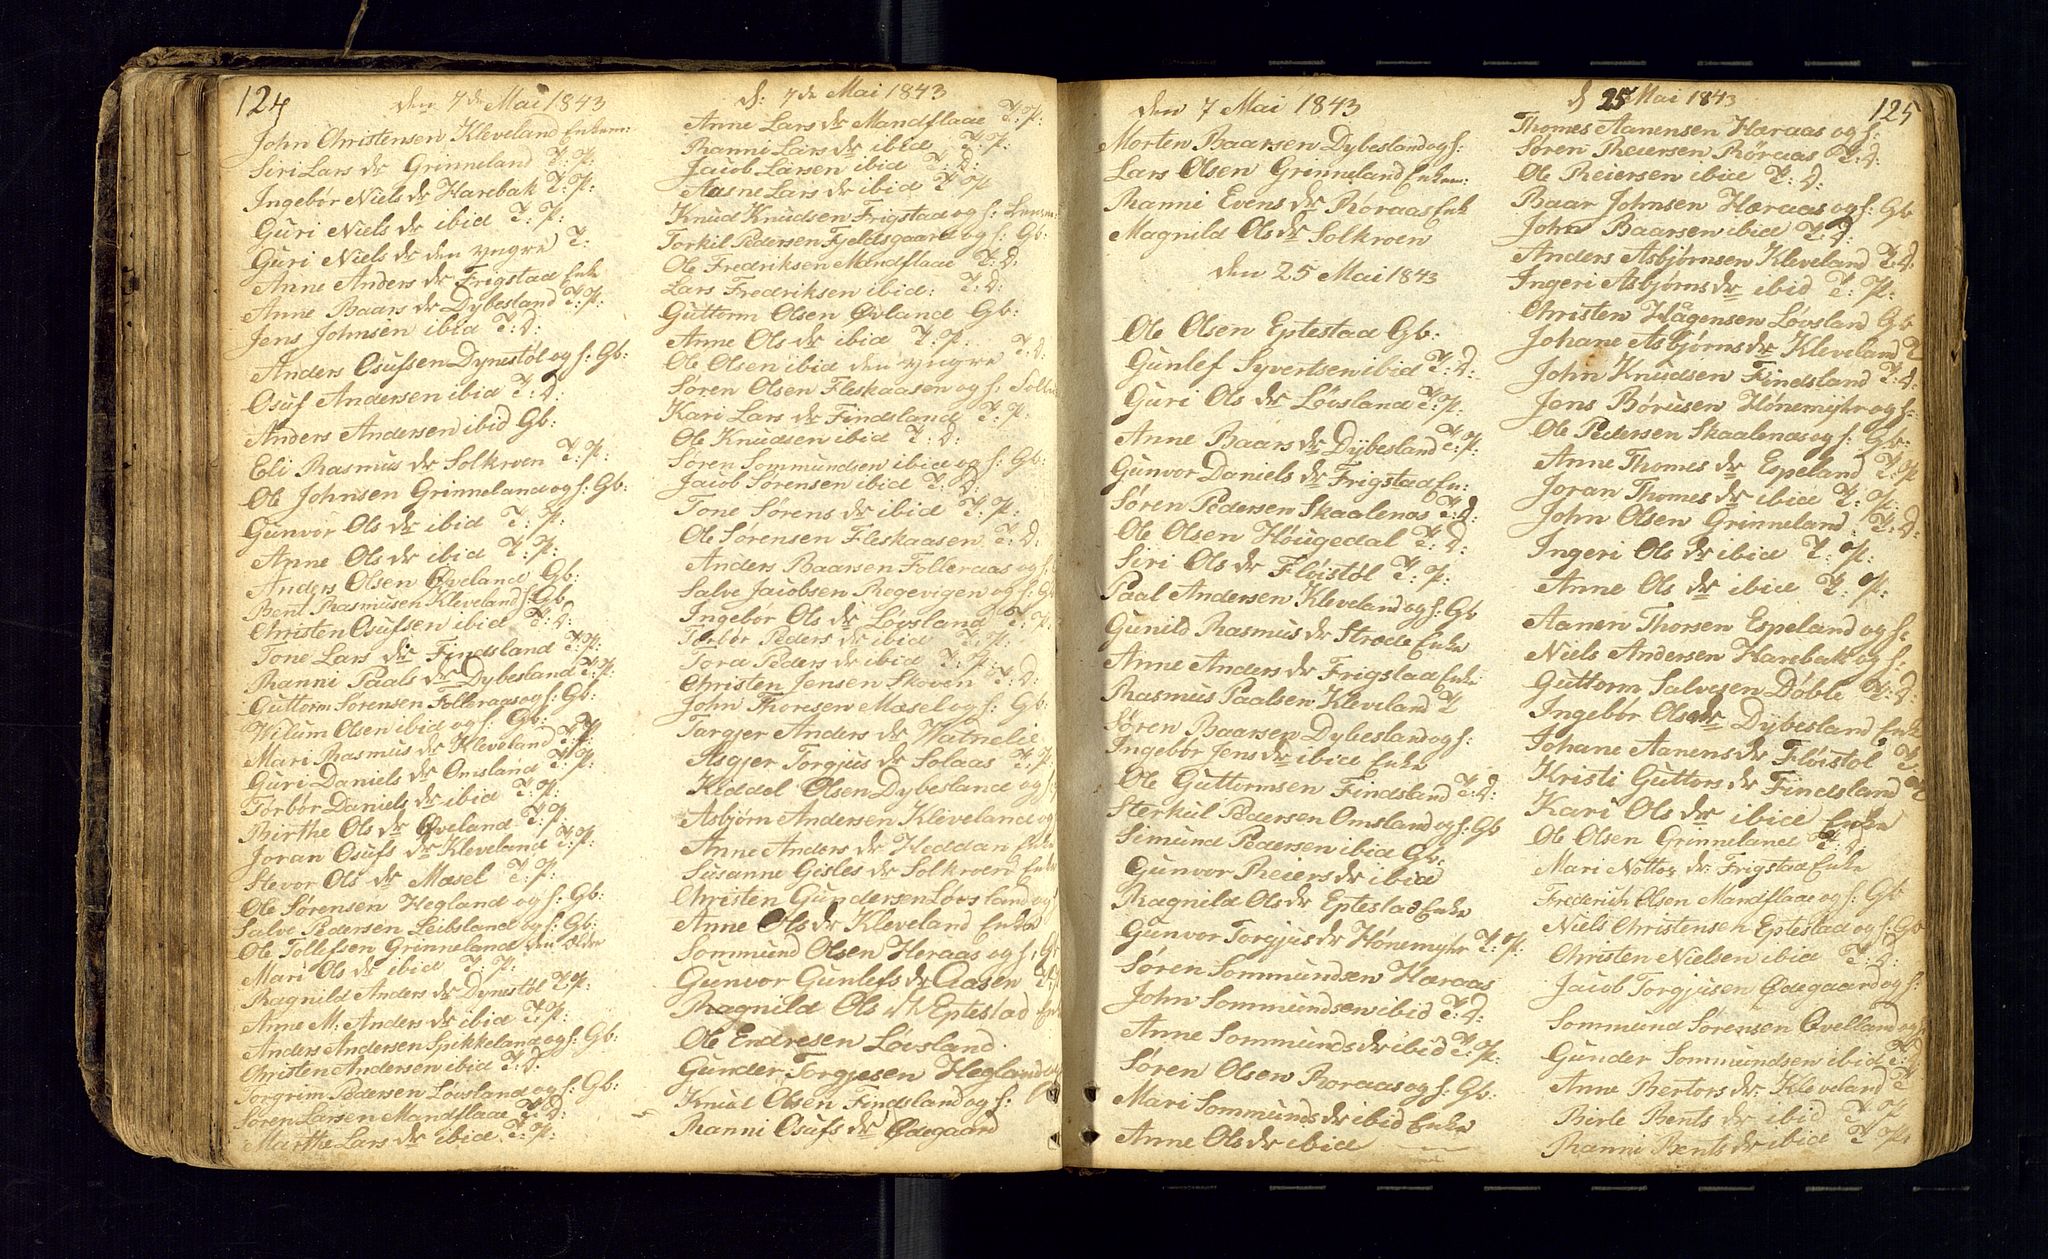 124
den 7de Mai 1843
John Christensen Kleveland Enkem:
Siri Lars dr Grinneland T: P:
Ingebør Niels dr Harebak T: P:
Guri Niels dr ibid T: P:
Guri Niels dr den yngre T:
Anne Anders dr Frigstad Enke
Anne Baars dr Dybesland T: P:
Jens Johnsen ibid T: D:
Anders Osufsen Dynestøl og h: Gb:
Osuf Andersen ibid T: D:
Anders Andersen ibid Gb:
Eli Rasmus dr Solkroen T: P:
Ole Johnsen Grinneland og h: Gb:
Gunvor Ols dr ibid T: P:
Anne Ols dr ibid T: P:
Anders Olsen Øveland Gb:
Bent Rasmusen Kleveland h: Gb
Christen Osufsen ibid T: D:
Tone Lars dr Findsland T: P:
Ranni Paals dr Dybesland T: P:
Guttorm Sørensen Folleraas og h: Gb:
Wilum Olsen ibid og h: Gb:
Mari Rasmus dr Kleveland T: P:
Guri Daniels dr Omsland T: P:
Torbør Daniels dr ibid T: P:
Birthe Ols dr Øveland T: P:
Joran Osufs dr Kleveland T: P:
Stevor Ols dr Mæsel T: P:
Ole Sørensen Hegland og h: Gb:
Salve Pedersen Leibsland og h: Gb:
Ole Tollefsen Grinneland den ældre
Mari Ols dr ibid T: P:
Ragnild Anders dr Dynestøl T: P:
Anne M: Anders dr ibid T: P:
Anders Andersen Spikkeland og h: Gb:
Christen Andersen ibid T: D:
Torgrim Pedersen Løvsland og h: Gb:
Søren Larsen Mandflaae T: D:
Marthe Lars dr ibid T: P:
d: 7de Mai 1843
Anne Lars dr Mandflaae T: P:
Ranni Lars dr ibid T: P:
Jacob Larsen ibid T: D:
Aasne Lars dr ibid T: P:
Knud Knudsen Frigstad og h:
Torkil Pedersen Fjeldsgaard og h: Gb:
Ole Fredriksen Mandflaae T: D:
Lars Fredriksen ibid: T: D:
Guttorm Olsen Øvland Gb:
Anne Ols dr ibid T: P:
Ole Olsen ibid den yngre T: D:
Søren Olsen Fleskaasen og h:
Kari Lars dr Findsland T: P:
Ole Knudsen ibid T: D:
Søren Sommundsen ibid og h: Gb:
Jacob Sørensen ibid T: D:
Tone Sørens dr ibid T: P:
Ole Sørensen Fleskaasen T: D:
Anders Baarsen Folleraas og h:
Salve Jacobsen Regevigen og h: Gb
Ingebør Ols dr Løvsland T: P:
Torbør Peders dr ibid T: P:
Tora Peders dr ibid T: P:
Christen Jensen Skoven T: D:
John Thoresen Mæsel og h: Gb:
Targjer Anders dr Watnelie
Asgjer Torgjus dr Solaas T: P:
Keddel Olsen Dybesland og h:
Asbjørn Andersen Kleveland og
Anne Anders dr Heddan Enke
Susanne Gisles dr Solkroen Enke
Christen Gundersen Løvsland og
Anne Ols dr Kleveland Enke
Sommund Olsen Heraas og h: Gb
Gunvor Gunlefs dr Aasen T: P:
Ragnild Ols dr Eptestad Enke
Ole Endresen Løvsland
Gunder Torgjesen Hegland og
Knud Olsen Findsland og h:
Ranni Osufs dr Ødegaard
den 7 Mai 1843
Morten Baarsen Dybesland og h:
Lars Olsen Grinneland Enkem:
Ranni Evens dr Roraas Enk
Magnild Ols dr Solkroen
den 25 Mai 1843
Ole Olsen Eptestad Gb:
Gunlef Syvertsen ibid T: D:
Guri Ols dr Løvsland T: P:
Anne Baars dr Dybesland T: P:
Gunvor Daniels dr Frigstad En:
Søren Pedersen Skaalenæs T: D:
Ole Olsen Høugedal T: D:
Siri Ols dr Fløistøl T: P:
Paal Andersen Kleveland og h: Gb
Gunild Rasmus dr Strøde Enke
Anne Anders dr Frigstad Enke
Rasmus Paalsen Kleveland T
Søren Baarsen Dybesland og h:
Ingebør Jens dr ibid Enke
Ole Guttormsen Findsland T: D:
Sterkul Pedersen Omsland og h: Gb
Simund Pedersen ibid Gb:
Gunvor Reiers dr ibid
Ragnild Ols dr Eptestad Enke
Gunvor Torgjus dr Hønemyhr T: P:
Søren Sommundsen Hæraas
John Sommundsen ibid T: D:
Anne Sommunds dr ibid T: P:
Søren Olsen Roraas og h: Gb:
Mari Sommunds dr ibid Enke
Anne Ols dr ibid
125
d 25 Mai 1843
Thomas Aanensen Hæraas og h:
Søren Reiersen Røraas T: D:
Ole Reiersen ibid T: D:
Baar Johnsen Hæraas og h: Gb
John Baarsen ibid T: D:
Anders Asbjørnsen Kleveland T: D:
Ingeri Asbjørns dr ibid T: P:
Christen Hågensen Løvsland Gb
Johane Asbjørns dr Kleveland T
John Knudsen Findsland T: D:
Jens Børusen Hønemyhr og h:
Ole Pedersen Skaalenæs og h: Gb:
Anne Thomes dr Espeland T: P
Joran Thomes dr ibid T: P:
John Olsen Grinneland T: D:
Ingeri Ols dr ibid T: P:
Anne Ols dr ibid T: P:
Aanen Thorsen Espeland og h:
Niels Andersen Harebak og h:
Guttorm Salvesen Døble T: D:
Ingebør Ols dr Dybesland Enke
Johane Aanens dr Fløistøl T:
Kristi Guttors dr Findsland
Kari Ols dr ibid Enke
Ole Olsen Grinneland T: D:
Mari Nottos dr Frigstad Enke
Frederich Olsen Mandflaae og h: Gb
Niels Christensen Eptestad og h: Gb
Christen Nielsen ibid T: D:
Jacob Torgjusen Ødegaard og h:
Sommund Sørensen Øvelland og h
Gunder Sommundsen ibid T: D
Anne Bertors dr Kleveland T
Birle Bents dr ibid T P
Ranni Bents dr ibid T P: